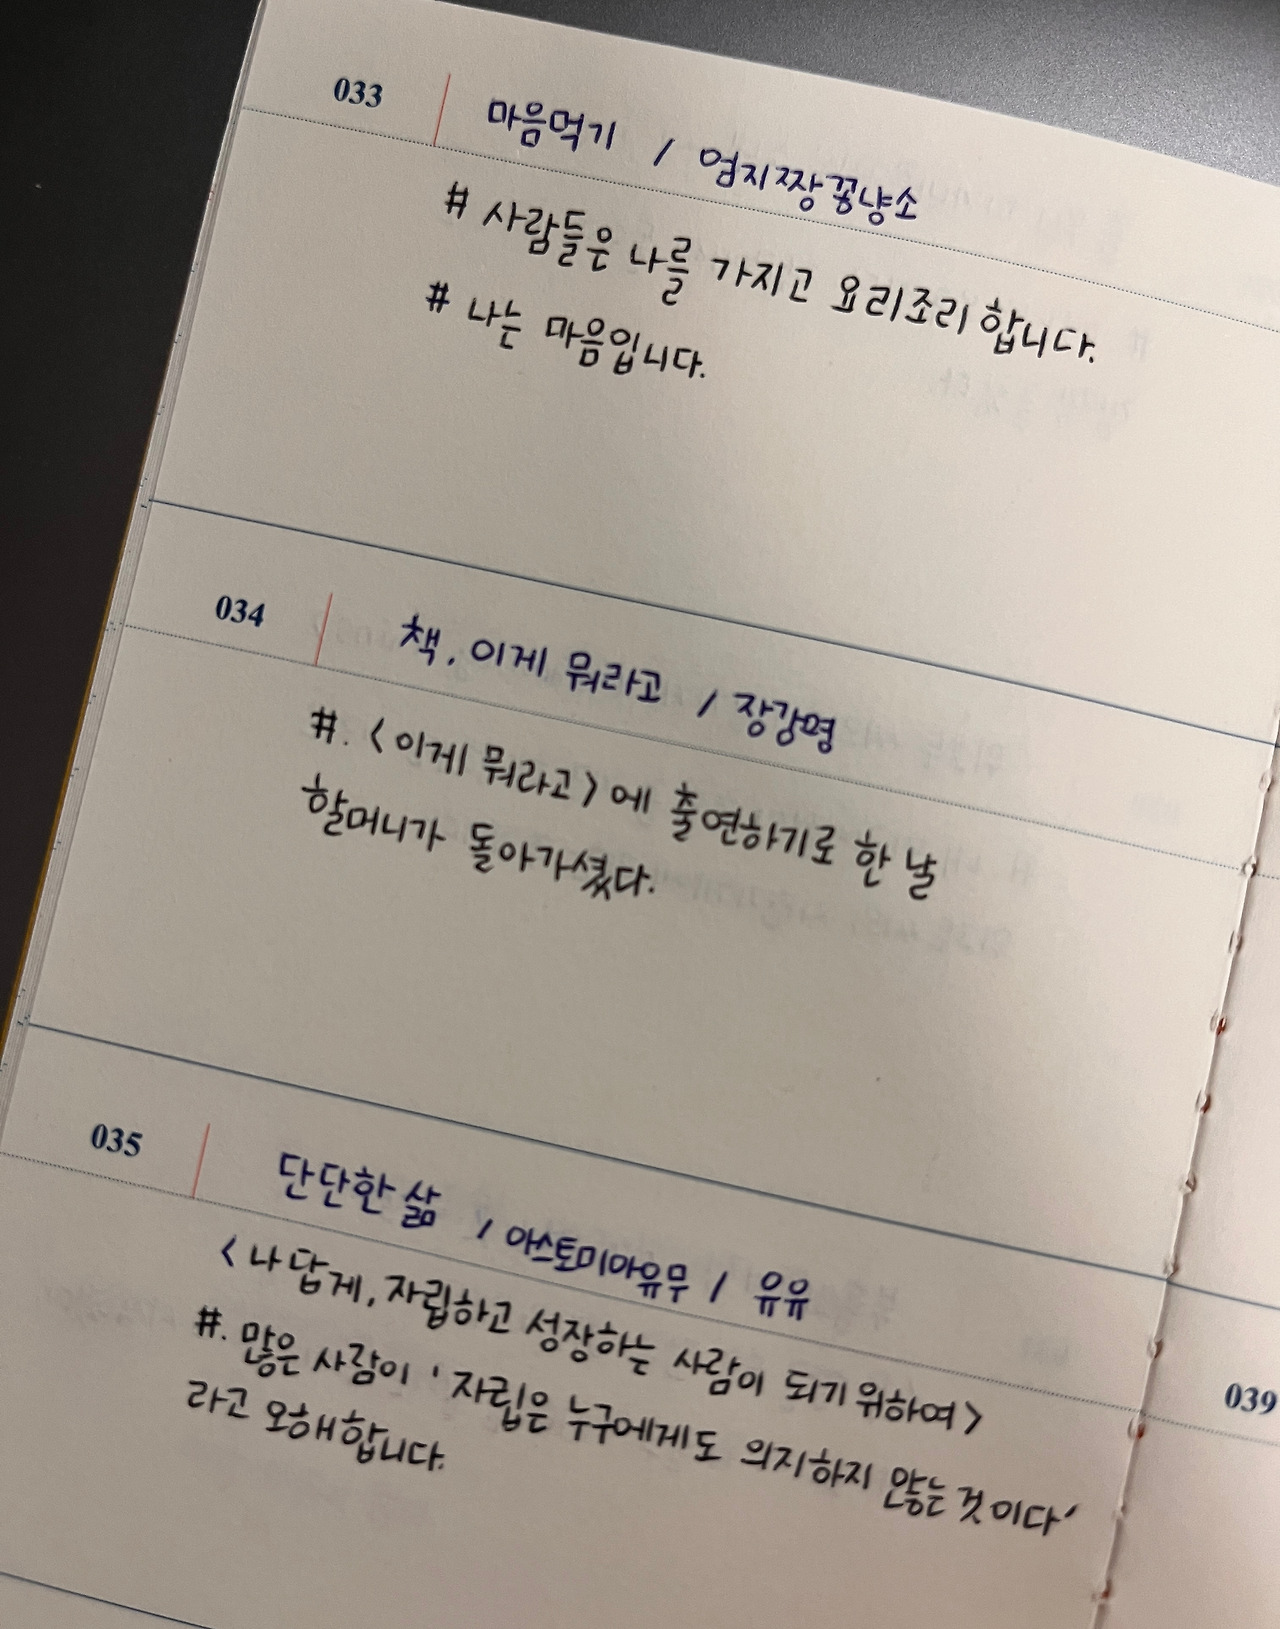 033 마음먹기 / 엄지짱꽁냥소
# 사람들은 나를 가지고 요리조리 합니다.
# 나는 마음입니다.
034 책, 이게 뭐라고 / 장강명
#. <이게 뭐라고>에 출연하기로 한 날
할머니가 돌아가셨다.
035 단단한 삶 / 야스토미아유무 / 유유
<나답게, 자립하고 성장하는 사람이 되기 위하여>
#. 많은 사람이 '자립은 누구에게도 의지하지 않는 것이다'
라고 오해합니다.
039